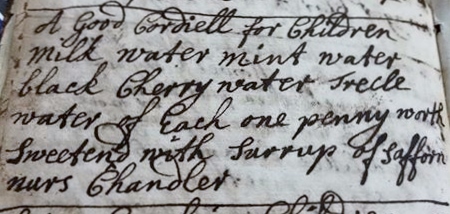 A Good Cordiell for Children
milk water mint water
black Cherry water Trecle
water of Each one penny worth
Sweetend with Surrup of Safforn
nurs Chandler